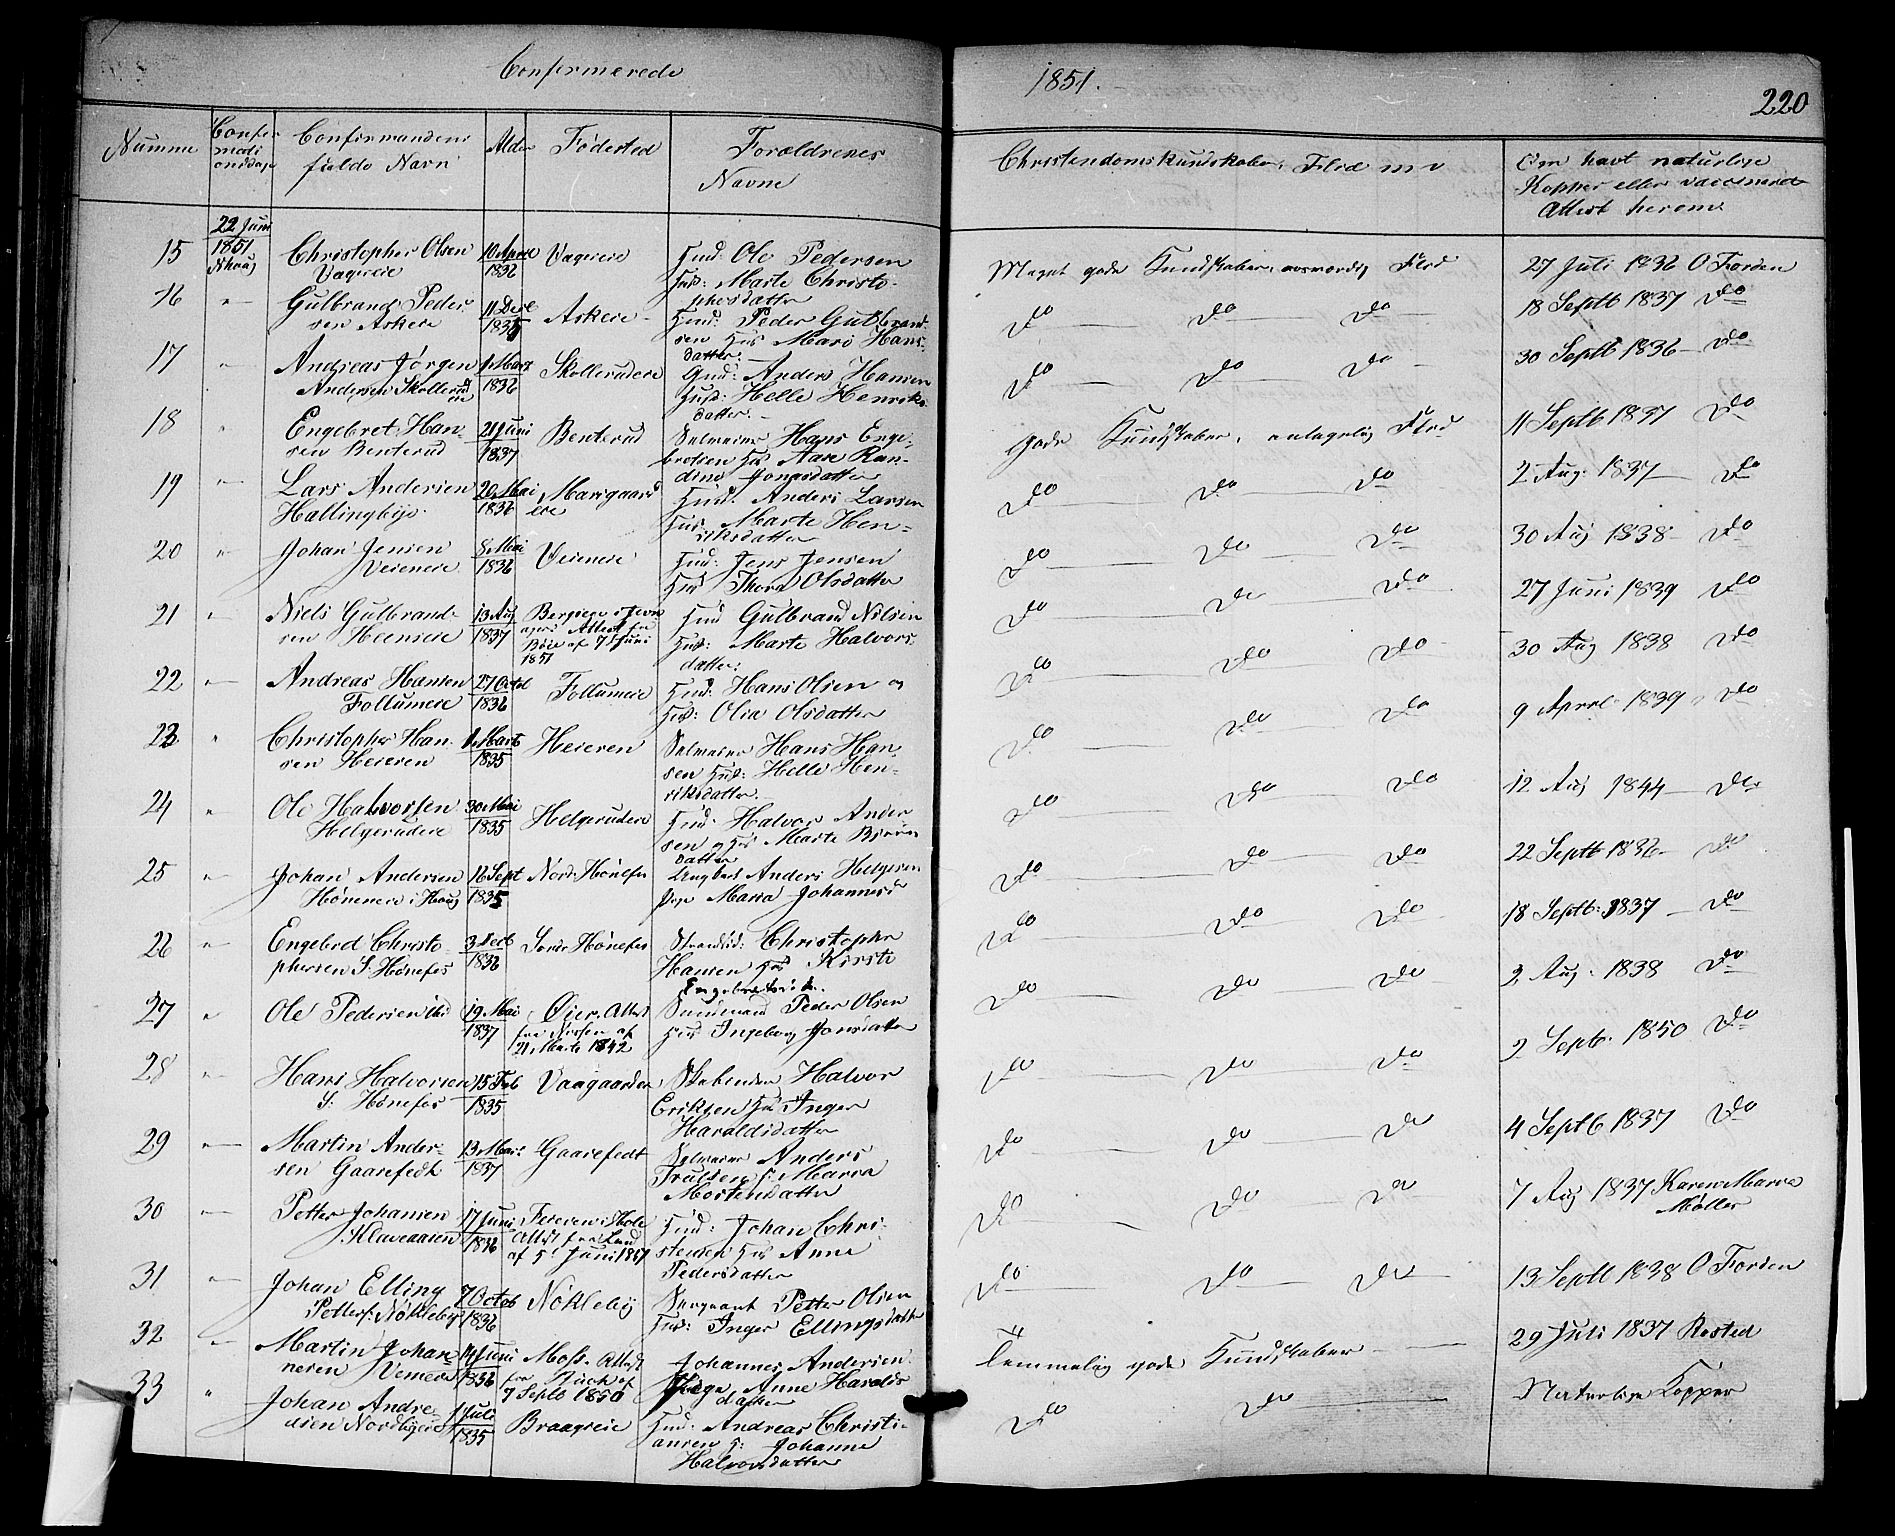 Confirmerede
1851.
220
Numme
Confir
mati
onsdage
Confirmandens
fulde Navn
Alder
Fødested
Forældrenes
Navne
Christendomskundskaber, Flid m v
Om havt naturlige
Kopper eller vaccineret
Attest herom
15
22 Juni
1851
Nhoug
Christopher Olsen
Vagereie
10 April
1836
Vagereie
Husd: Ole Pedersen
Hus: Marte Christo-
phersdatter
Meget gode Kundskaber, Flid
27 Juli 1836 O Forden
16
Gulbrand Peder
sen Askeie
11 Dece
1835
Askeie
Husd: Peder Gulbrand
sen Hus Mari Hans-
datter
Do Do Do
18 Septb 1837 Do
17
Andreas Jørgen
Andersen Skollerud
eie
1 Mart
1836
Skollerudeie
Husd: Anders Hansen
Hus: Helle Henriks-
datter
Do Do Do
30 Septb 1836 Do
18
Engebret Han-
sen Benterud
21 Juni
1837
Benterud
Selveier Hans Enge-
bretsen Hus Aase Ran-
dine Jonsdatter
gode Kundskaber, antagelig Flid
11 Septb 1837 Do
19
Lars Andersen
Hallingbye
20 Mai
1836
Marigaard
eie
Husd: Anders Larsen
Hus: Marte Hen-
riksdatter
Do Do Do
2 Aug: 1837 Do
20
Johan Jensen
Veieneie
8 Mai
1836
Veieneie
Husd: Jens Jensen
Hus Thora Olsdatter
Do Do Do
30 Aug 1838 Do
21
Niels Gulbrand-
sen Heeneie
13 Aug
1837
Attest fra
af 7 Juni
1851
Husd Gulbrand Nilsen
Hus: Marte Halvors-
datter
Do Do Do
27 Juni 1839 Do
22
Andreas Hansen
Follumeie
27 Octob
1836
Follumeie
Husd: Hans Olsen og
Hus: Olia Olsdatter
Do Do Do
30 Aug 1838 Do
23
Christopher Han-
sen Heieren
1 Marts
1835
Heieren
Selveier Hans Han-
sen Hus: Helle Hen-
riksdatter
Do Do Do
9 April 1839 Do
24
Ole Halvorsen
Helgerudeie
30 Mai
1835
Helgerudeie
Husd: Halvor Ander
sen og Hus Marte Biørns
datter
Do Do Do
12 Aug 1844 Do
25
Johan Andersen
Høneneie i Houg
16 Sept
1835
Nord: Hønefos
Ungkarl Anders Helgesen
Pige Maria Johannesd
Do Do Do
22 Septb 1836 Do
26
Engebrd Christo-
phersen S: Hønefos
3 Decb
1836
Sønder Hønefos
Strandsid: Christopher
Hansen Hus Kirsti
Engebretsd.
Do Do Do
18 Septb: 1837 Do
27
Ole Pedersen ibid
19 Mai
1837
Øier, Attest
fra af
21 Marts 1842
Peder Olsen
Hus Ingeborg Jonsdatter
Do Do Do
2 Aug. 1838 Do
28
Hans Halvorsen
S: Hønefos
15 Feb
1835
Vaagaarden
Halvor
Eriksen Hus Inger
Haraldsdatter
Do Do Do
2 Septb. 1850 Do
29
Martin Ander-
sen Gaarefedt
13 Mart
1837
Gaarefedt
Selveier Anders
Trulsen H: Maria
Mortensdatter
Do Do Do
4 Septb 1837 Do
30
Petter Johansen
Klaveaasen
17 Juni
1836
Attest fra Land
af 5 Juni 1851
Husd: Johan Chri-
stensen Hus Anne
Pedersdatter
Do Do Do
7 Aug 1837 Karen Marie
Møller
31
Johan Elling
Petters: Nøkleby
7 Octob
1836
Nøkleby
Sergeant Petter Olsen
Hus: Inger Ellingsdatter
Do Do Do
13 Septb 1838 O Forden
32
Martin Johan-
nesen Vemeie
14 Juni
1836
Moss. Attest
fra af
7 Septb 1850
Johannes Andersen
Pige Anne Haralds
datter
Temmelig gode Kundskaber
29 Juli 1837 Rosted
33
Johan Andre
asen Nordbyeie
1 Juli
1835
Braageeie
Husd: Andreas Christi-
ansen H: Johanne
Halvorsdatter
Do Do
Naturlige Kopper